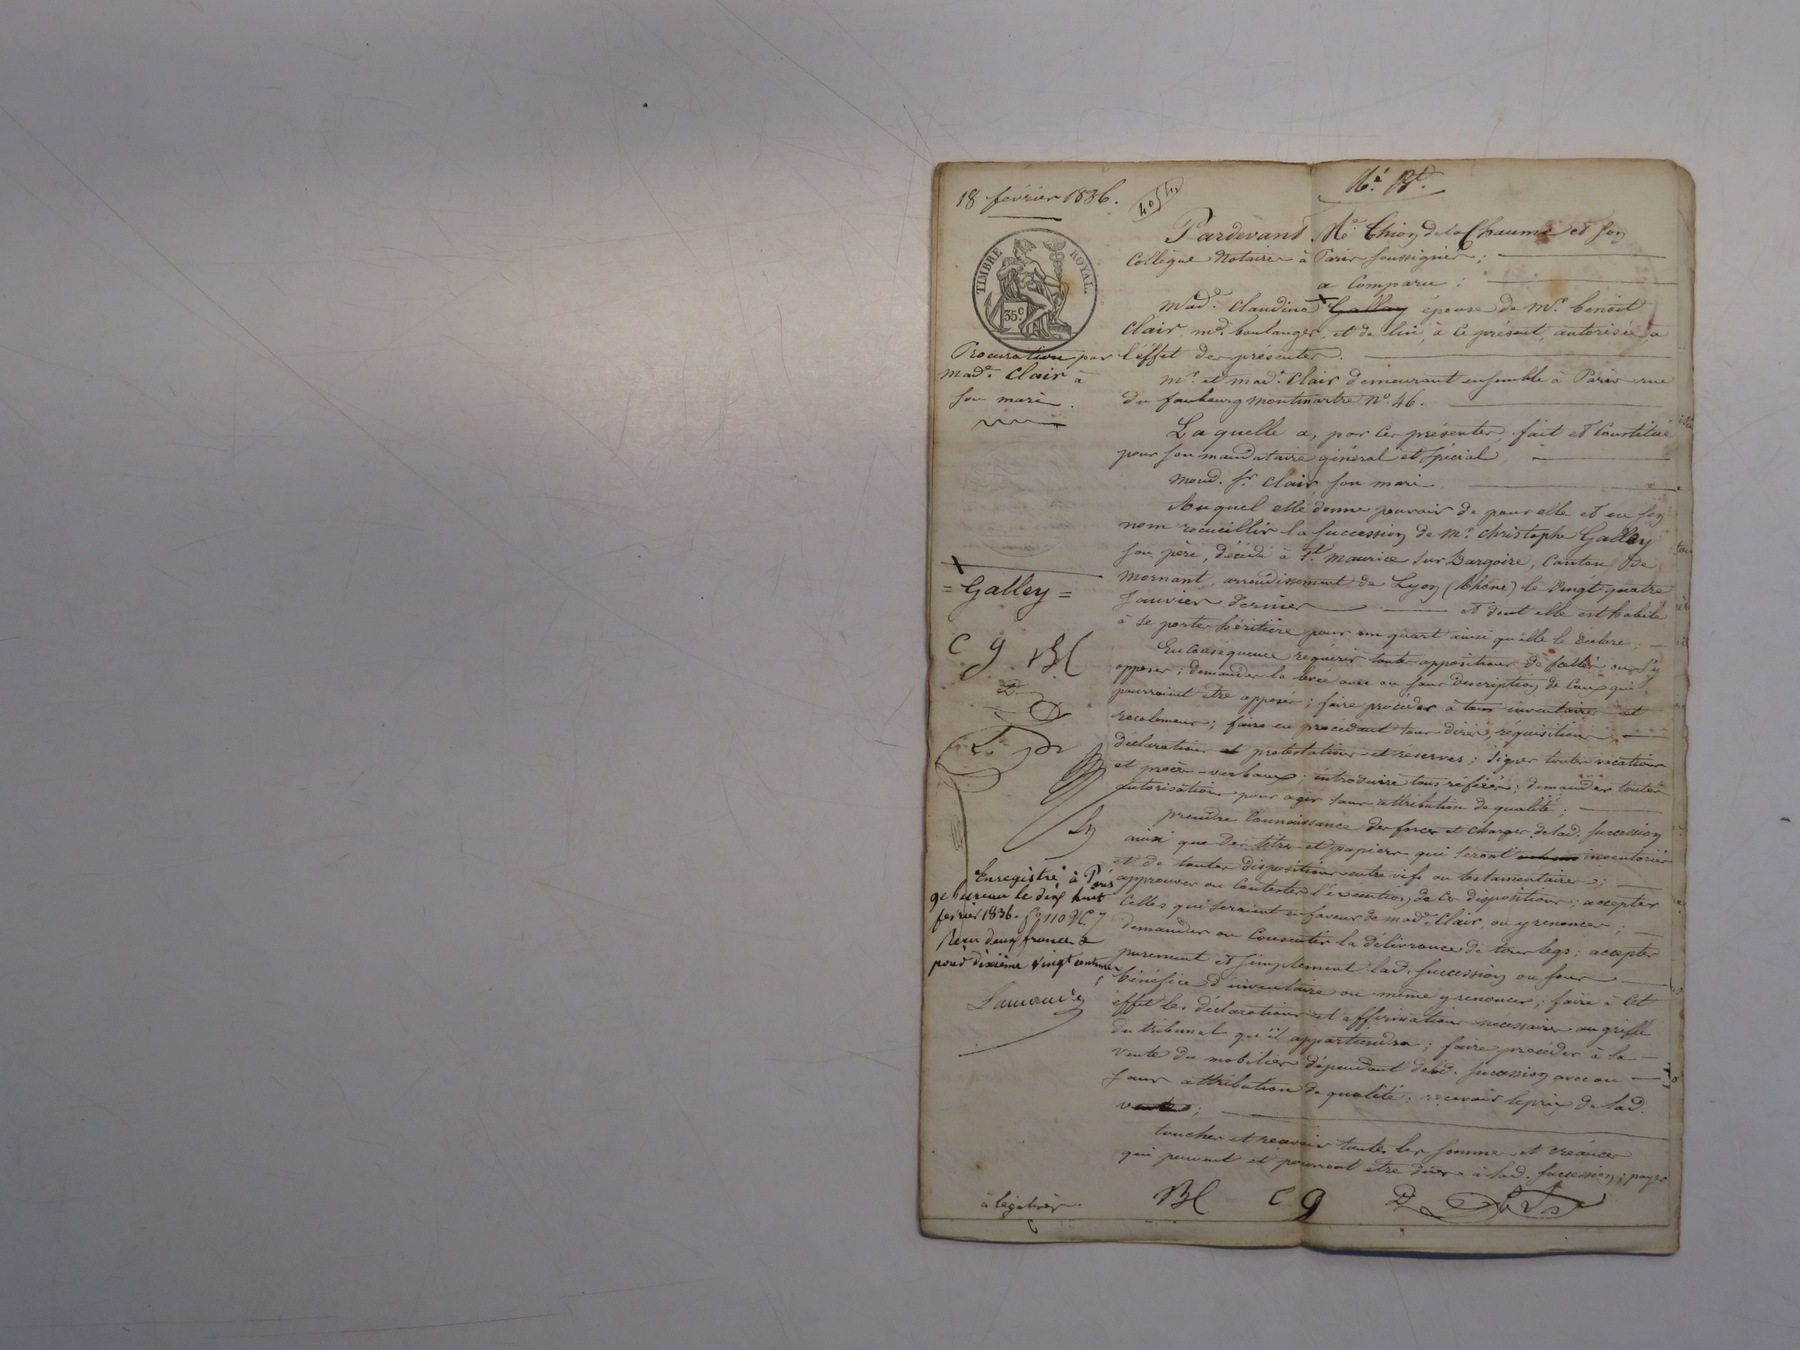 18 février 1836.
TIMBRE ROYAL.
35 c
Procuration par
mad.e Clair à
son mari.
= Galley =
C g BC
Enregistré à Paris
9e bureau le dix huit
février 1836. fo 110 Vo C 7
Reçu deux francs
pour dixième vingt centimes
à légaliser.
Pardevant Me Chion de la Chaume et son
Collègue Notaires à Paris soussignés ;
a Comparu :
Mad.e Claudine Galley épouse de Mr. benoit
Clair md. boulanger, et de lui, à ce présent, autorisée, à
l'éffet des présentes.
mr. et mad.e Clair demeurant ensemble à Paris rue
du faubourg montmartre No. 46.
Laquelle a, par ces présentes, fait et Constitué
pour son mandataire général et spécial,
mond. Sr. Clair son mari.
Auquel elle donne pouvoir de pour elle et en son
nom recueillir la succession de Mr. Christophe Galley
son père, décédé à St. Maurice sur Dargoire, Canton de
Mornant, arrondissement de Lyon (Rhône) le vingt quatre
Janvier dernier et dont elle est habile
à se porter héritière pour un quart ainsi qu'elle le déclare ;
En Conséquence réquérir toutes appositions de scellés ou s'y
opposer ; demander la levée avec ou sans description de Ceux qui
pourraient être apposés ; faire procéder à tous inventaires et
recolemens ; faire en procédant tous dires, réquisitions,
déclarations et protestations et réserves ; signer toutes vacations
et procès-verbaux ; introduire tous référés ; demander toutes
autorisations pour agir sans attribution de qualité ;
prendre Connaissance des forces et charges de lad. succession
ainsi que des titres et papiers qui seront inventoriés
et de toutes dispositions entre vifs ou testamentaires ;
approuver ou Contester l'éxécution de ces dispositions ; accepter
Celles qui seraient en faveur de mad.e Clair, ou y renoncer ;
demander ou Consentir la délivrance de tous legs ; accepter
purement et simplement lad. succession ou sous
bénéfice d'inventaire ou même y renoncer ; faire à cet
effet les déclarations et affirmations nécessaires au greffe
du tribunal qu'il appartiendra ; faire procéder à la
vente du mobilier dépendant de lad. succession avec ou
sans attribution de qualité ; recevoir le prix de lad.
vente ;
toucher et recevoir toutes les sommes et créances
qui peuvent et pourront être dues à lad. succession ; payer
BC C g